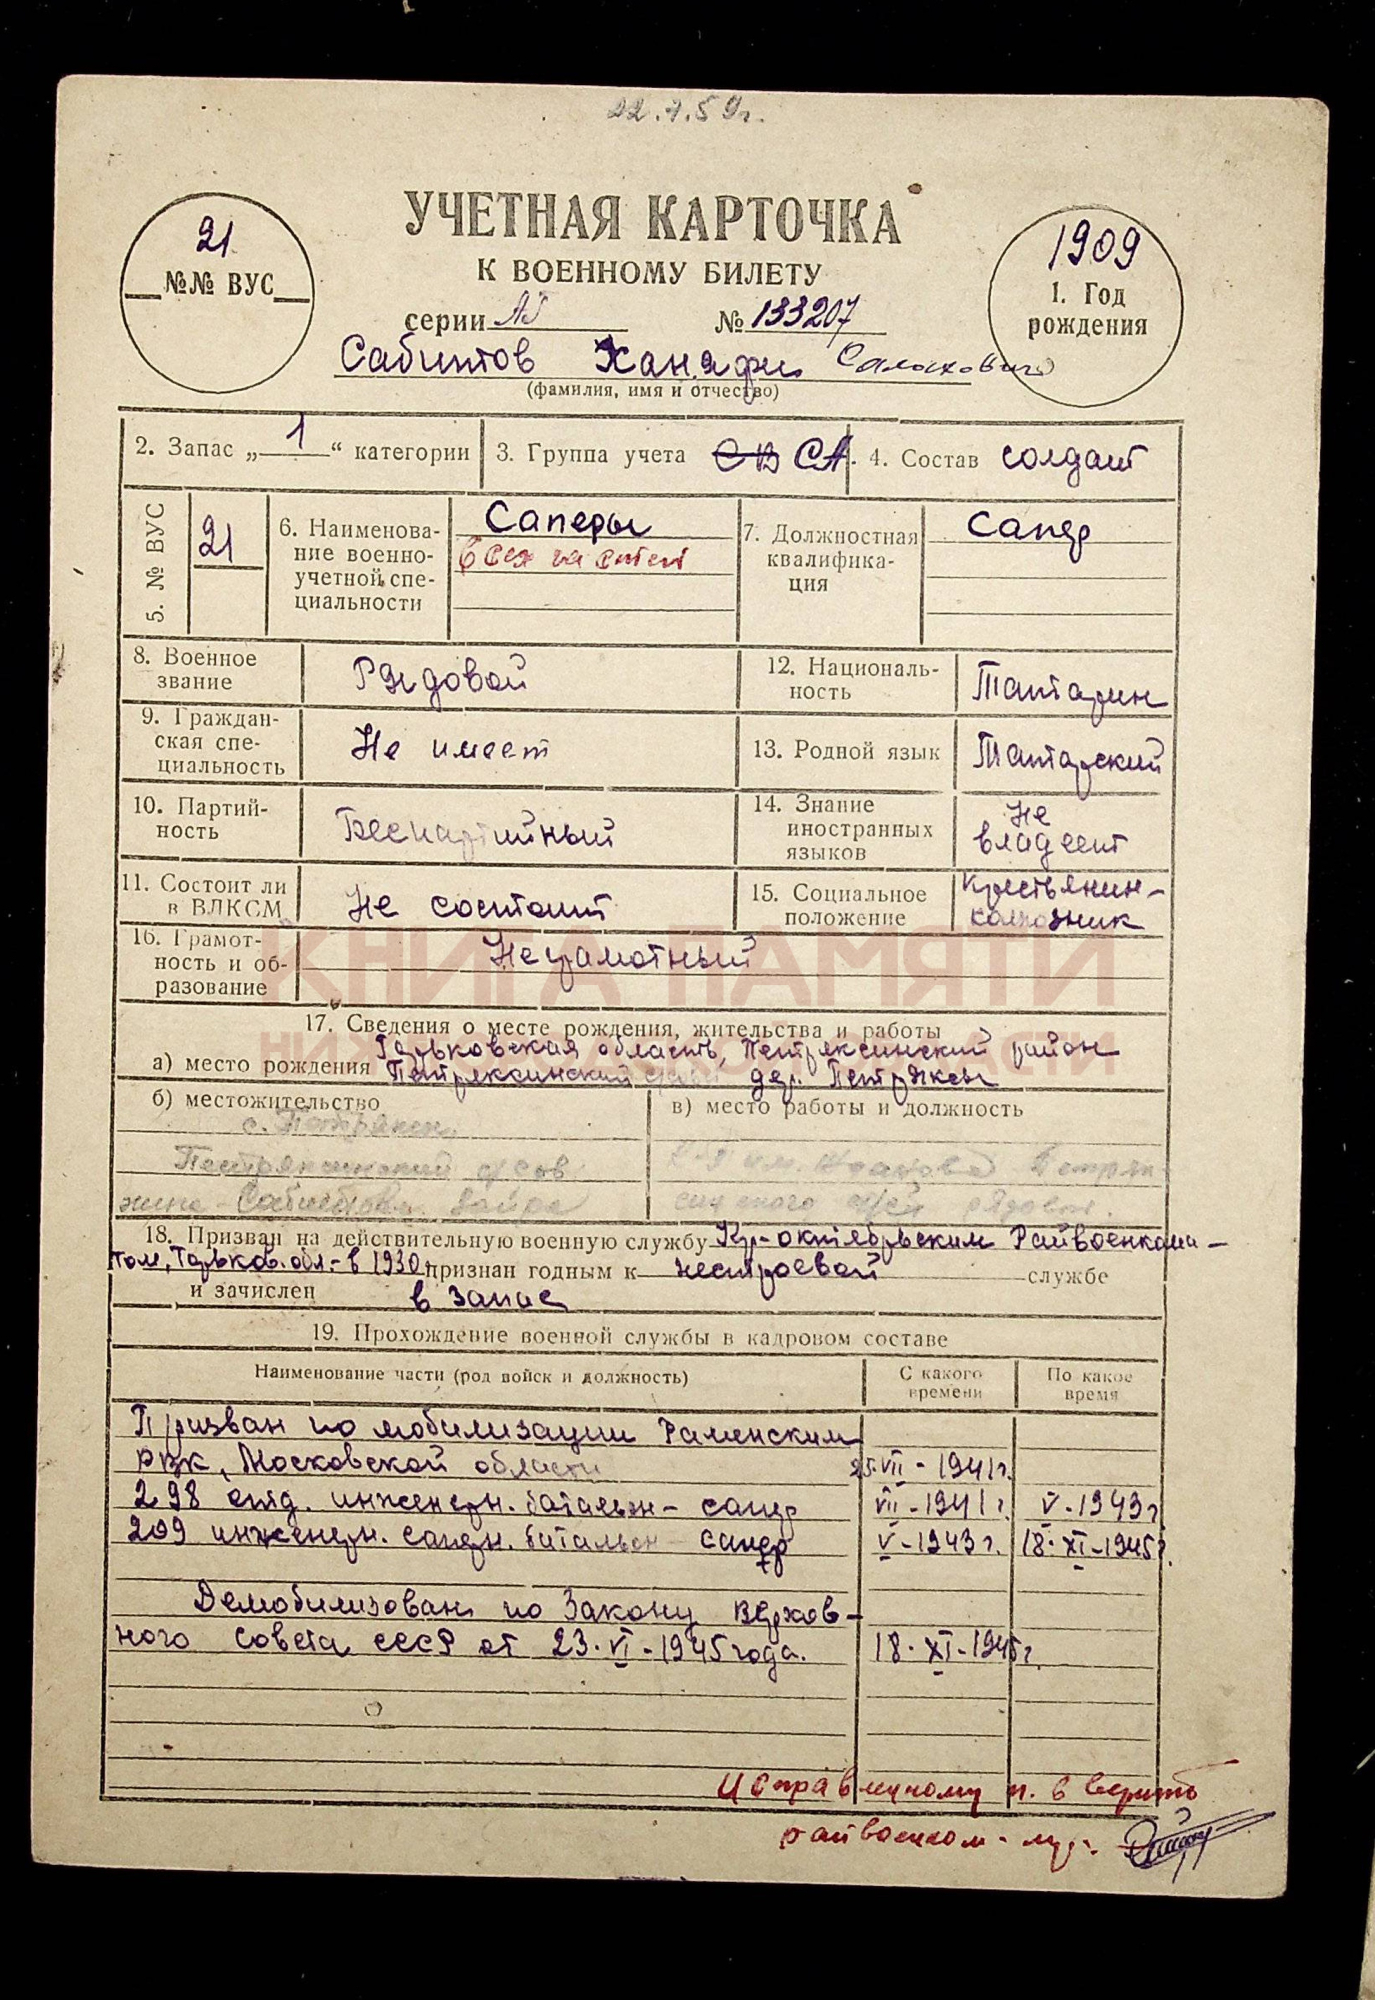 22.7.59г.
УЧЕТНАЯ КАРТОЧКА
К ВОЕННОМУ БИЛЕТУ
21
№№ ВУС
1909
1. Год
рождения
серии № 133207
Сабитов Ханяфи Салахович
(фамилия, имя и отчество)
2. Запас „1“ категории
3. Группа учета СВ СА.
4. Состав солдат
5. № ВУС
21
6. Наименова-
ние военно-
учетной спе-
циальности
Саперы
7. Должностная
квалифика-
ция
Сапер
8. Военное
звание
Рядовой
12. Националь-
ность
Татарин
9. Граждан-
ская спе-
циальность
Не имеет
13. Родной язык
Татарский
10. Партий-
ность
Беспартийный
14. Знание
иностранных
языков
Не
владеет
11. Состоит ли
в ВЛКСМ
Не состоит
15. Социальное
положение
Крестьянин-
колхозник
16. Грамот-
ность и об-
разование
Неграмотный
КНИГА ПАМЯТИ
17. Сведения о месте рождения, жительства и работы
Горьковская область, Петряксинский район
а) место рождения Петряксинский дер. Петряксы
б) местожительство
в) место работы и должность
с. Петряксы
Петряксинский
жена - Сабитова
им.
рядовой.
18. Призван на действительную военную службу Кр-октябрьским Райвоенкома-
том, Горьков. обл.- в 1930г. признан годным к нестроевой службе
и зачислен в запас
19. Прохождение военной службы в кадровом составе
Наименование части (род войск и должность)
С какого
времени
По какое
время
Призван по мобилизации Раменским
РВК, Московской области 25.VII - 1941г.
298 отд. инженерн. батальон - сапер VII - 1941г. V - 1943г
209 инженерн. саперн. батальон - сапер V - 1943г. 18.XI - 1945г.
Демобилизован по Закону Верхов-
ного Совета СССР от 23.VI - 1945 года. 18.XI - 1945г.
Исправленному п. 6 верить
райвоенком -